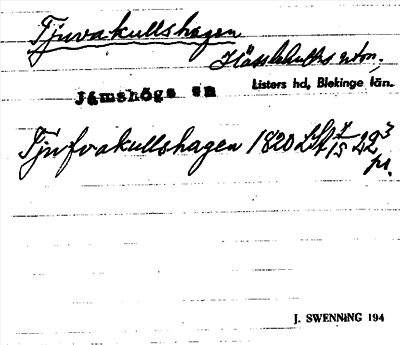 Tjuvakullshagen
Hässlehults utm.,
Jämshögs sn
Listers hd, Blekinge län.
Tjufvakullshagen 1820 LSA 7/15 42³
ps.
J. SWENNING 194